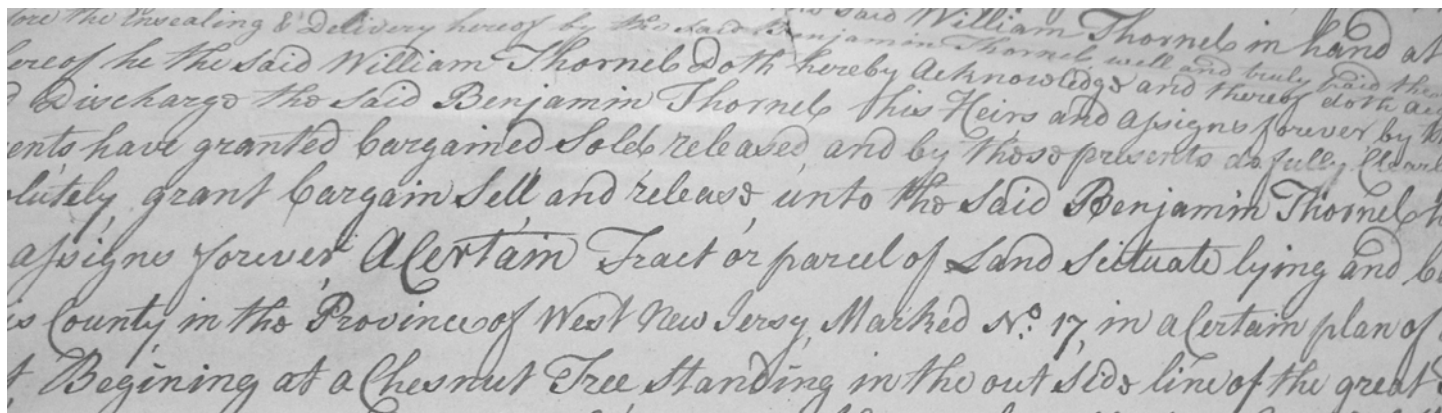 said William Thornel in hand at
the Ensealing & Delivery hereof by the said Benjamin Thornel well and truly paid the
hereof he the said William Thornel Doth hereby Acknowledge and thereof doth
Discharge the said Benjamin Thornel this Heirs and assigns forever by
ents have granted bargained Sold released and by these presents do fully Clear
lutely grant bargain Sell and release unto the said Benjamin Thornel
assigns forever A Certain Tract or parcel of Land Scituate lying and
is County in the Province of West New Jersy Marked No. 17, in a Certain plan of
t Begining at a Chesnut Tree Standing in the out side line of the great